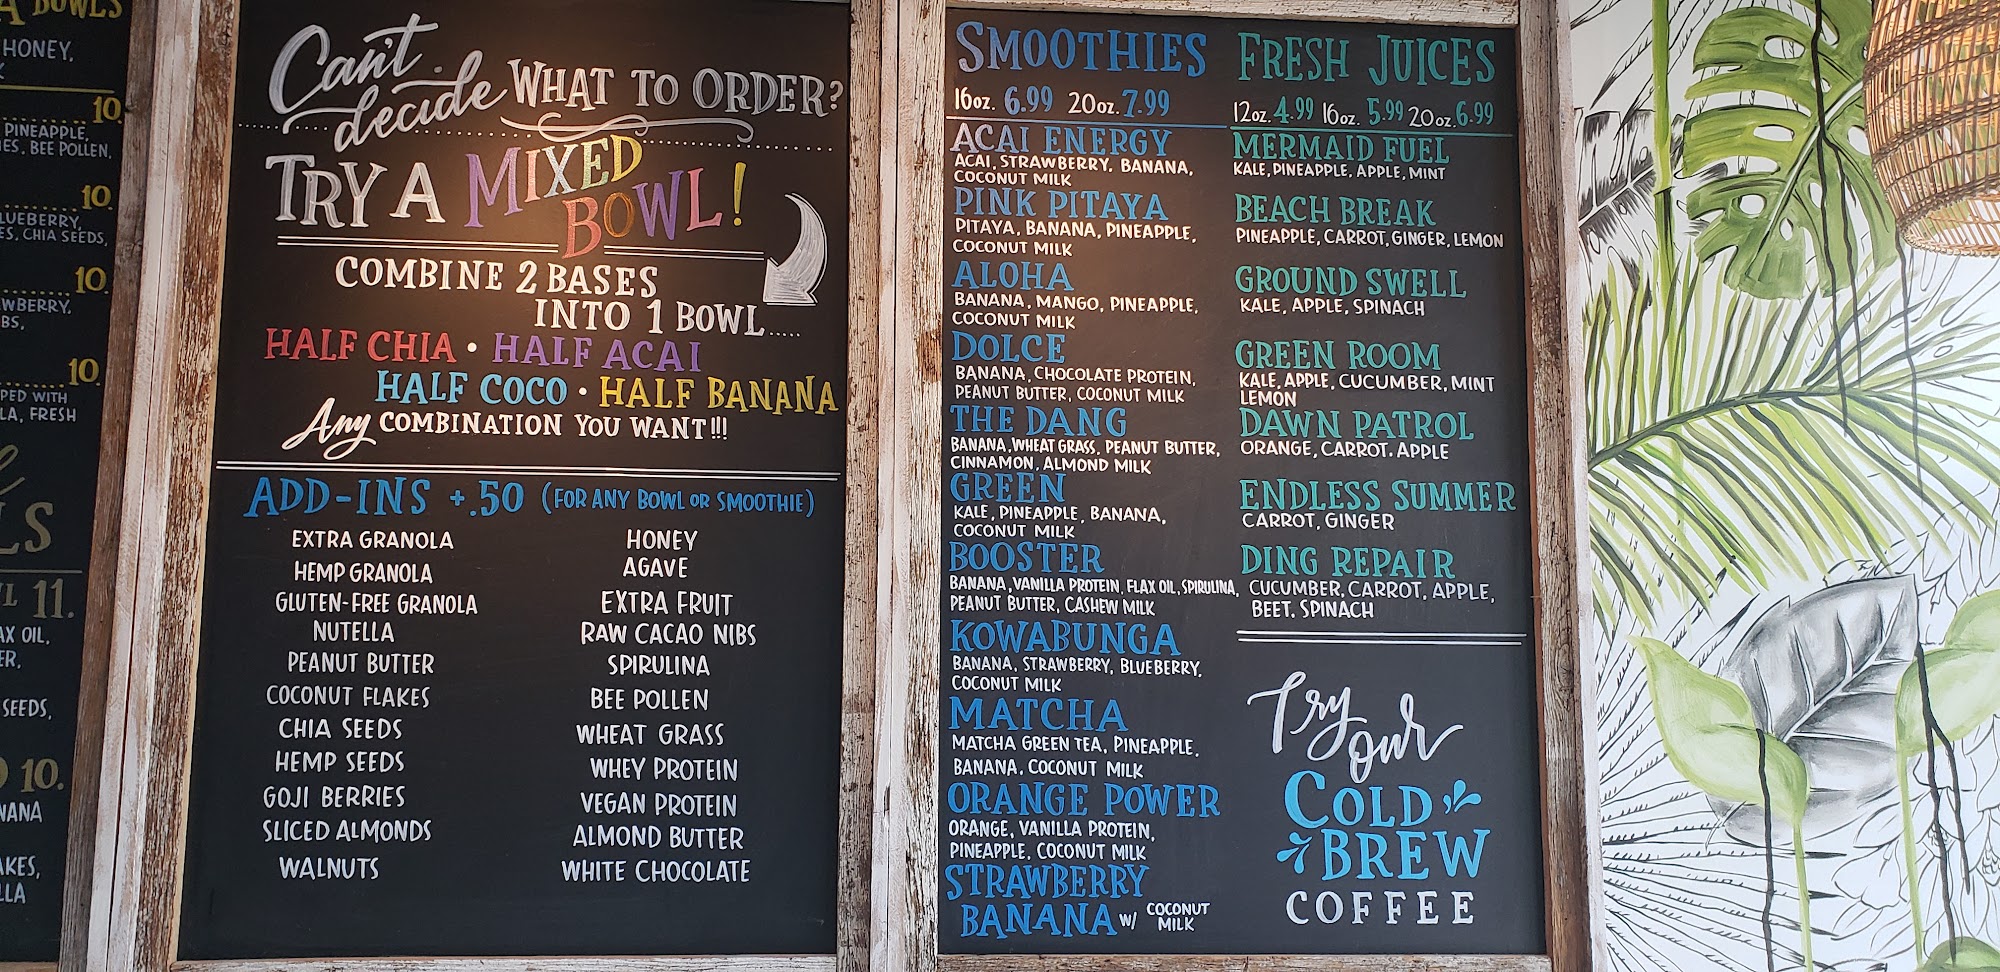 BOWLS
HONEY,
10.
PINEAPPLE,
BEE POLLEN,
10.
CHIA SEEDS,
10.
10.
FRESH
11.
OIL,
SEEDS,
10.
Can't decide WHAT TO ORDER?
TRY A MIXED BOWL!
COMBINE 2 BASES
INTO 1 BOWL.....
HALF CHIA • HALF ACAI
HALF COCO • HALF BANANA
Any COMBINATION YOU WANT!!!
ADD-INS +.50 (FOR ANY BOWL OR SMOOTHIE)
EXTRA GRANOLA
HEMP GRANOLA
GLUTEN-FREE GRANOLA
NUTELLA
PEANUT BUTTER
COCONUT FLAKES
CHIA SEEDS
HEMP SEEDS
GOJI BERRIES
SLICED ALMONDS
WALNUTS
HONEY
AGAVE
EXTRA FRUIT
RAW CACAO NIBS
SPIRULINA
BEE POLLEN
WHEAT GRASS
WHEY PROTEIN
VEGAN PROTEIN
ALMOND BUTTER
WHITE CHOCOLATE
SMOOTHIES
16oz. 6.99 20oz. 7.99
ACAI ENERGY
ACAI, STRAWBERRY, BANANA,
COCONUT MILK
PINK PITAYA
PITAYA, BANANA, PINEAPPLE,
COCONUT MILK
ALOHA
BANANA, MANGO, PINEAPPLE,
COCONUT MILK
DOLCE
BANANA, CHOCOLATE PROTEIN,
PEANUT BUTTER, COCONUT MILK
THE DANG
BANANA, WHEAT GRASS, PEANUT BUTTER,
CINNAMON, ALMOND MILK
GREEN
KALE, PINEAPPLE, BANANA,
COCONUT MILK
BOOSTER
BANANA, VANILLA PROTEIN, FLAX OIL, SPIRULINA,
PEANUT BUTTER, CASHEW MILK
KOWABUNGA
BANANA, STRAWBERRY, BLUEBERRY,
COCONUT MILK
MATCHA
MATCHA GREEN TEA, PINEAPPLE,
BANANA, COCONUT MILK
ORANGE POWER
ORANGE, VANILLA PROTEIN,
PINEAPPLE, COCONUT MILK
STRAWBERRY
BANANA W/ COCONUT MILK
FRESH JUICES
12oz. 4.99 16oz. 5.99 20oz. 6.99
MERMAID FUEL
KALE, PINEAPPLE, APPLE, MINT
BEACH BREAK
PINEAPPLE, CARROT, GINGER, LEMON
GROUND SWELL
KALE, APPLE, SPINACH
GREEN ROOM
KALE, APPLE, CUCUMBER, MINT
LEMON
DAWN PATROL
ORANGE, CARROT. APPLE
ENDLESS SUMMER
CARROT, GINGER
DING REPAIR
CUCUMBER, CARROT, APPLE,
BEET, SPINACH
Try our
COLD
BREW
COFFEE